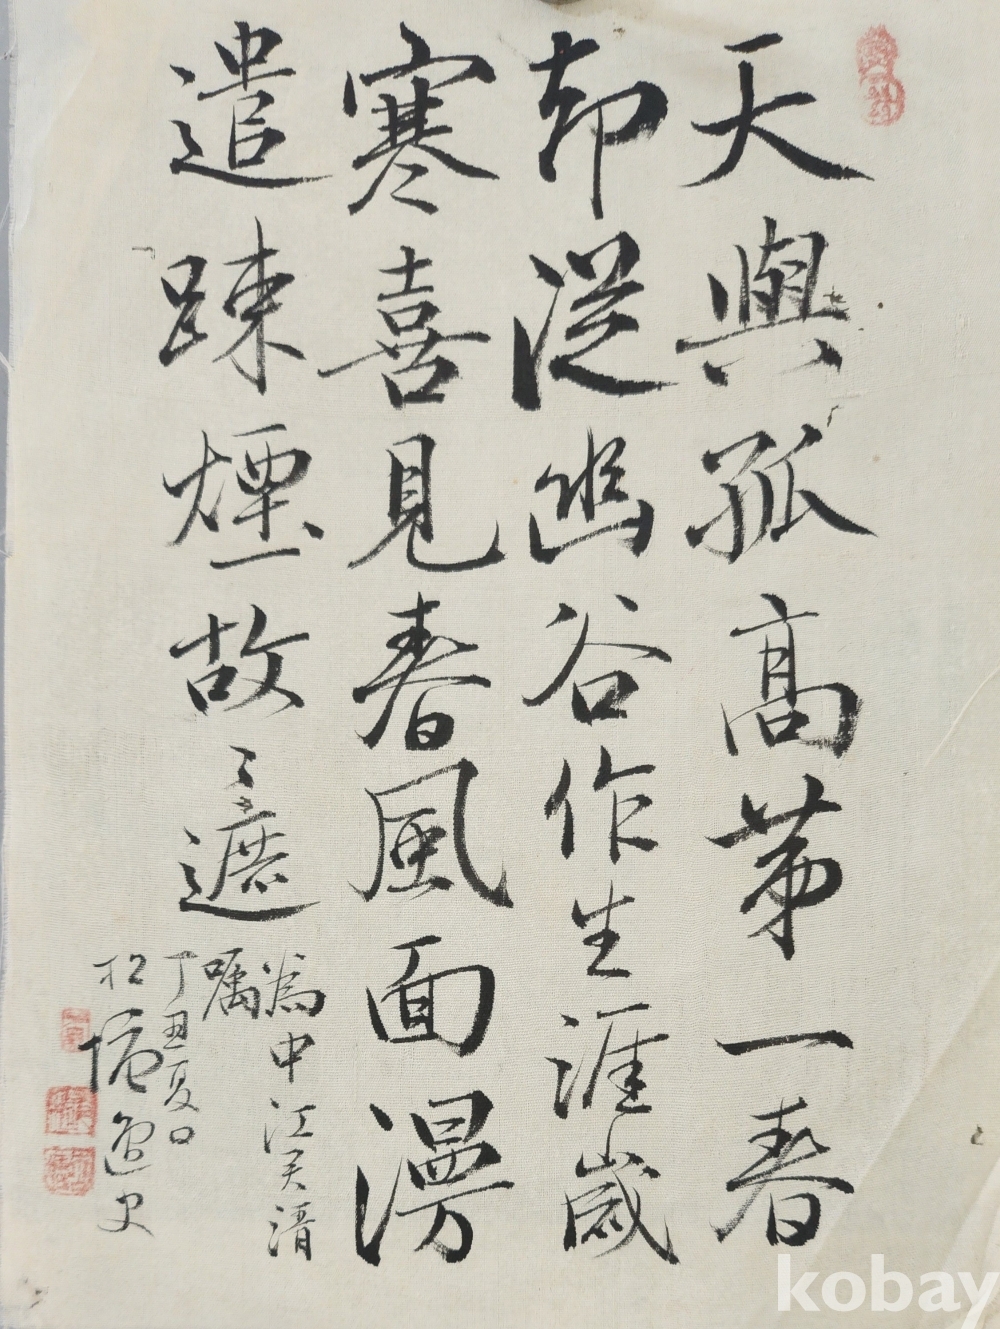 天與孤高第一春
却從幽谷作生涯歲
寒喜見春風面漫
遣踈煙故〻遮
為中江芙清
嘱
丁丑夏日
松
逸史
kobay